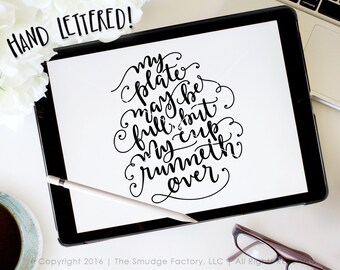 HAND LETTERED!
my
plate
may be
full, but
my cup
runneth
over
© Copyright 2016 | The Smudge Factory, LLC | All Rights Reserved